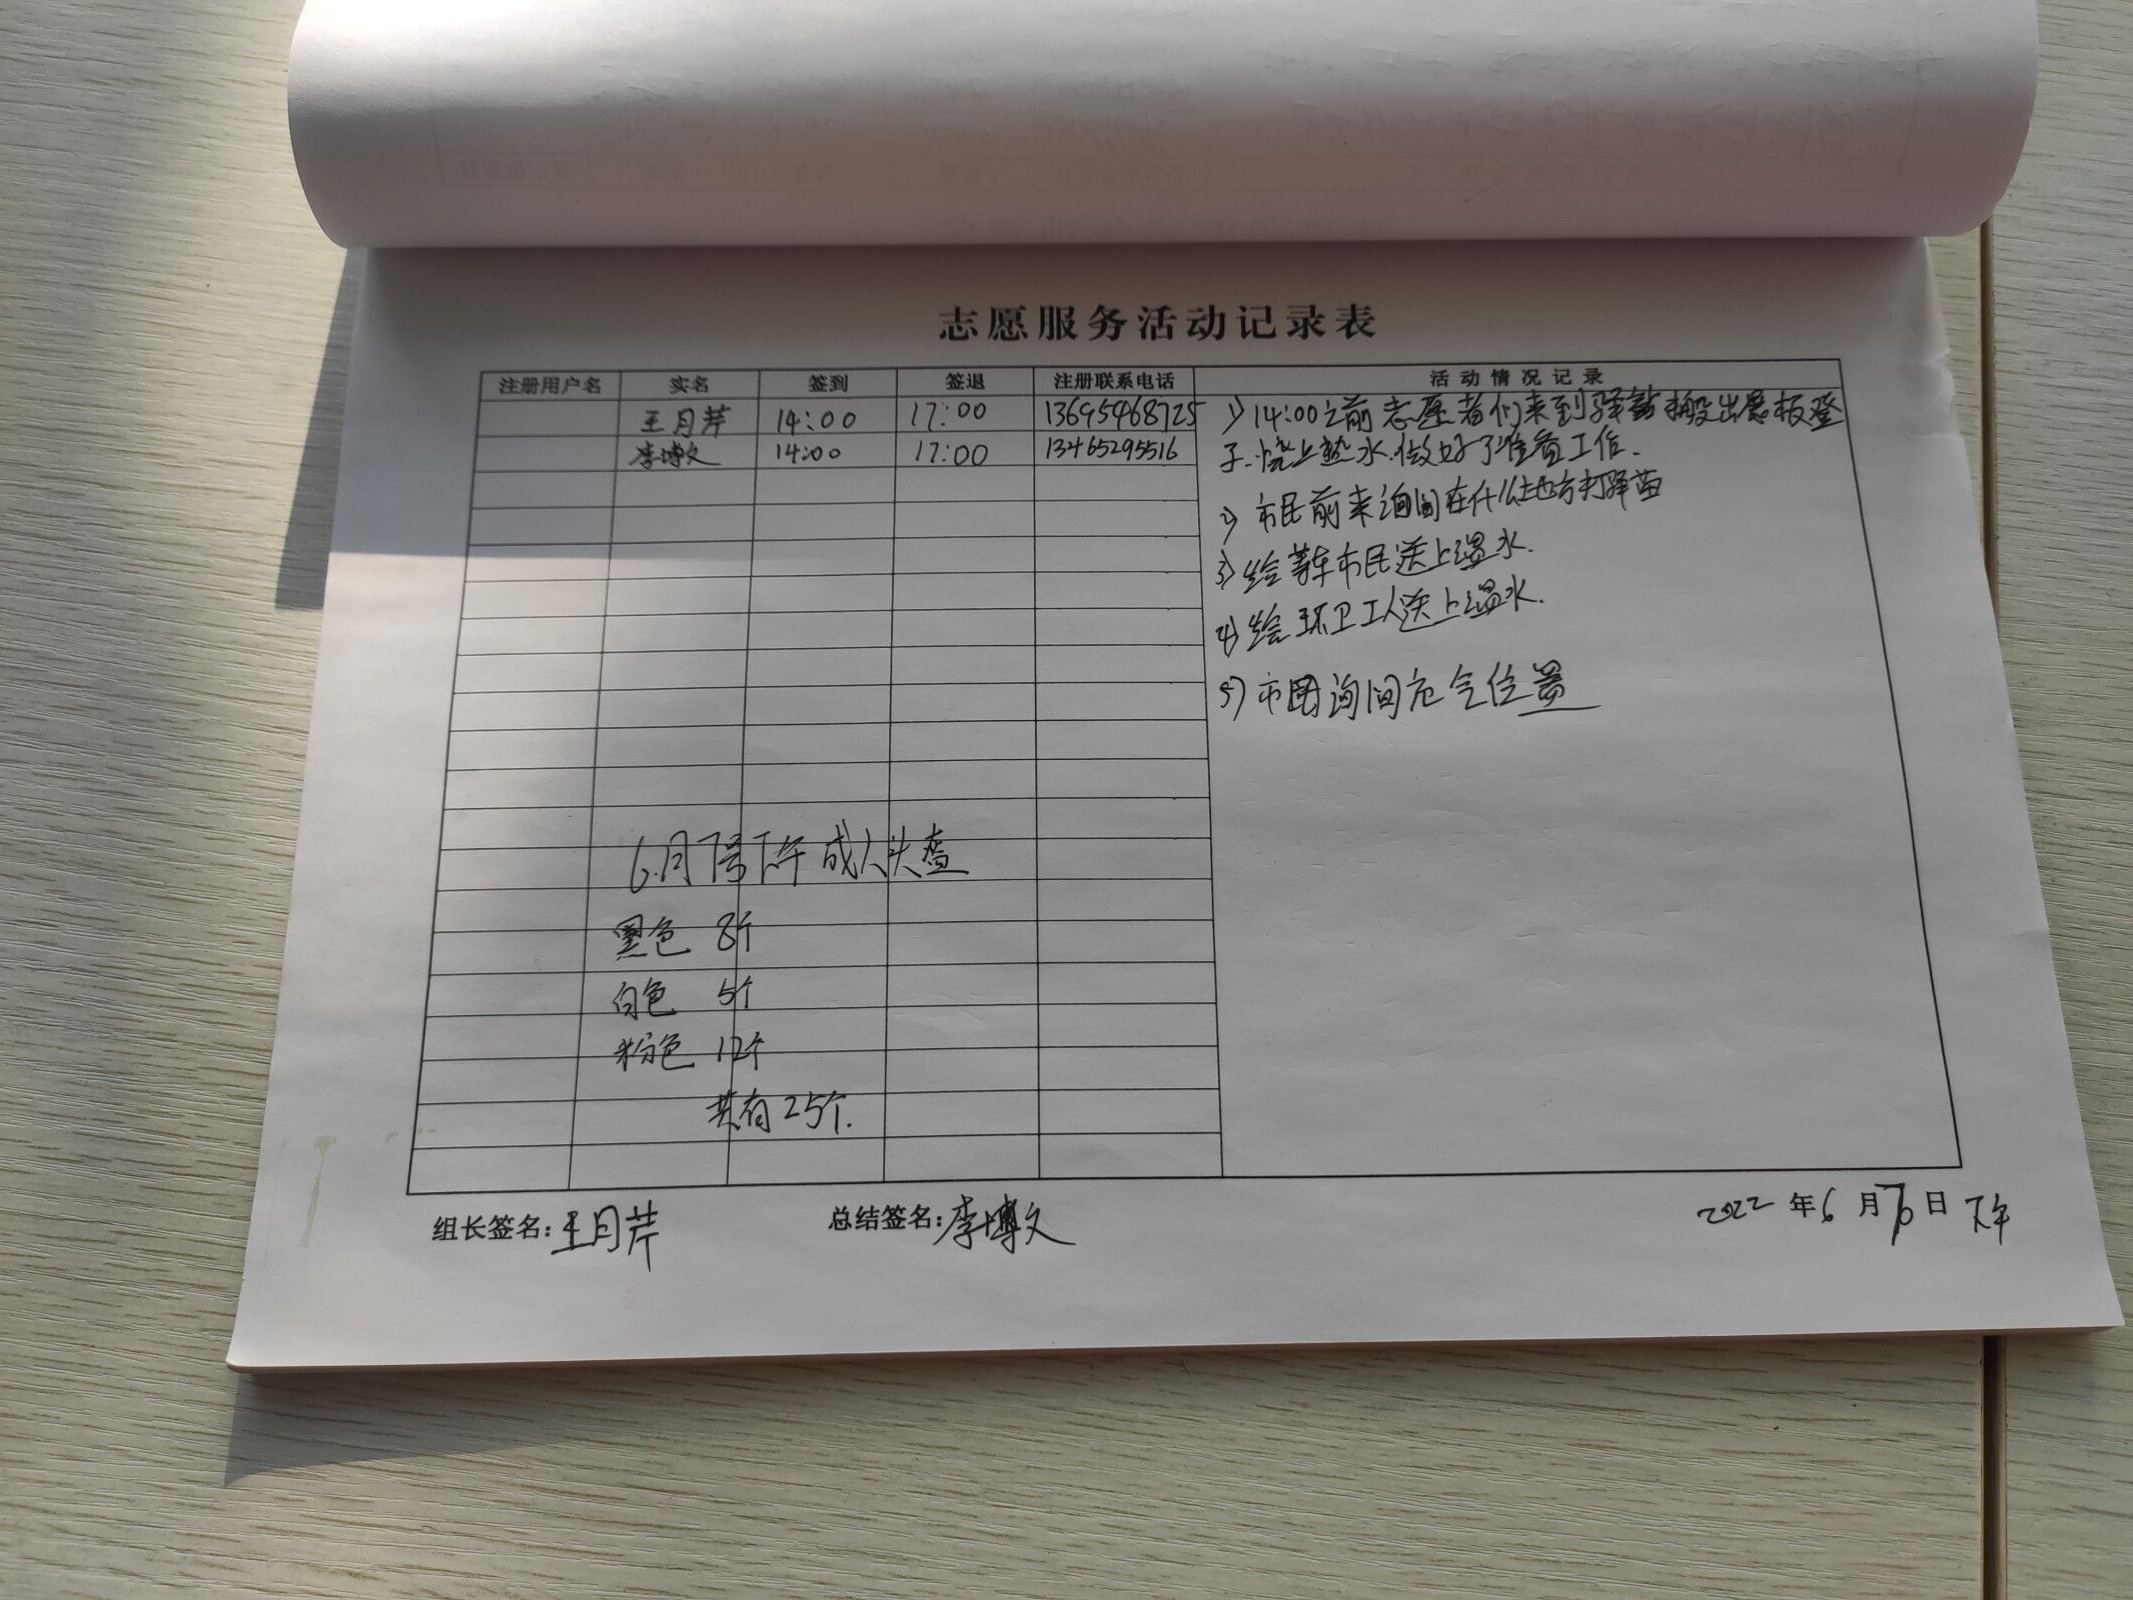 志愿服务活动记录表
注册用户名 实名 签到 签退 注册联系电话 活动情况记录
王月芹 14:00 17:00 13695468725
李博文 14:00 17:00 13465295516
1) 14:00之前志愿者们来到驿站搬出展板登
子.烧上热水.做好了准备工作.
2) 市民前来询问在什么地方打
3) 给等车市民送上温水.
4) 给环卫工人送上温水.
5) 市民询问 位置
6月7号下午成人头盔
黑色 8个
白色 5个
粉色 12个
共有25个.
组长签名:王月芹 总结签名:李博文 2022年6月 日 下午